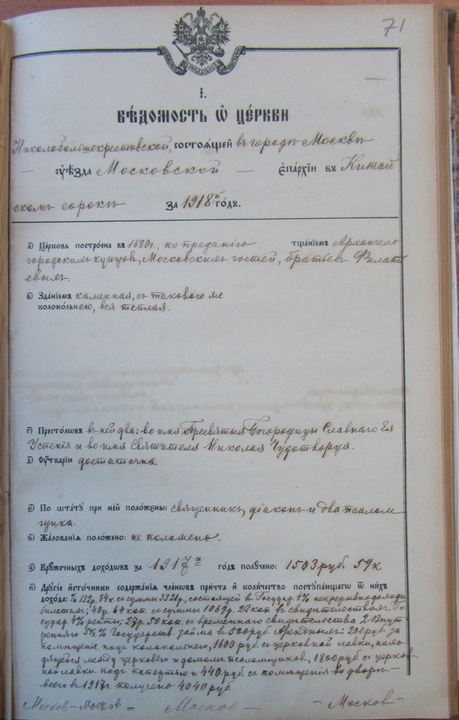 71
I.
Вѣдомость ѡ церкви
Николобольшекрестовской, состоящей въ городѣ Москвѣ
— оуѣзда Московской — епархіи въ Китай
скомъ сорокѣ за 1918й годъ.
а) Церковь построена въ 1680г, по преданію тщаніемъ Архангело
городскихъ купцовъ, Московскихъ гостей, братьевъ Филать
евыхъ.
в) Зданіемъ каменная, съ таковою же
колокольнею, вся теплая.
г) Престоловъ въ ней два: во имя Пресвятыя Богородицы Славнаго Ея
Успенія и во имя Святителя Николая Чудотворца.
д) Оутварію достаточна
е) По штату при ней положены: священникъ, діаконъ и два псалом
щика.
ѕ) Жалованія положено: не положено.
з) Кружечныхъ доходовъ за 1917й годъ получено: 1503 руб. 59 к
и) Другіе источники содержанія членовъ причта и количество поступающаго ѿ нихъ
дохода: 132р. 84к со суммы 3321р., состоящей въ Государ. 4% непрерывнодоход
билетъ; 40р. 64 коп. со суммы 1069р. 29 коп въ свидѣтельствѣ Го
судар 4% ренты; 27р. 50 коп. съ временнаго свидѣтельства 2 Внут
ренняго 5½% Государств. займа въ 500руб. Арендныхъ: 200 руб за
помѣщеніе подъ колокольнею, 1600 руб съ церковной лавки, нахо
дящейся между церковью и домомъ псаломщиковъ, 1800 руб съ церков
ной лавки подъ папертью и 440 руб. съ помѣщенія во дворѣ —
всего въ 1917г. получено 4040 руб.
Москов - Москов - Москов - Москов